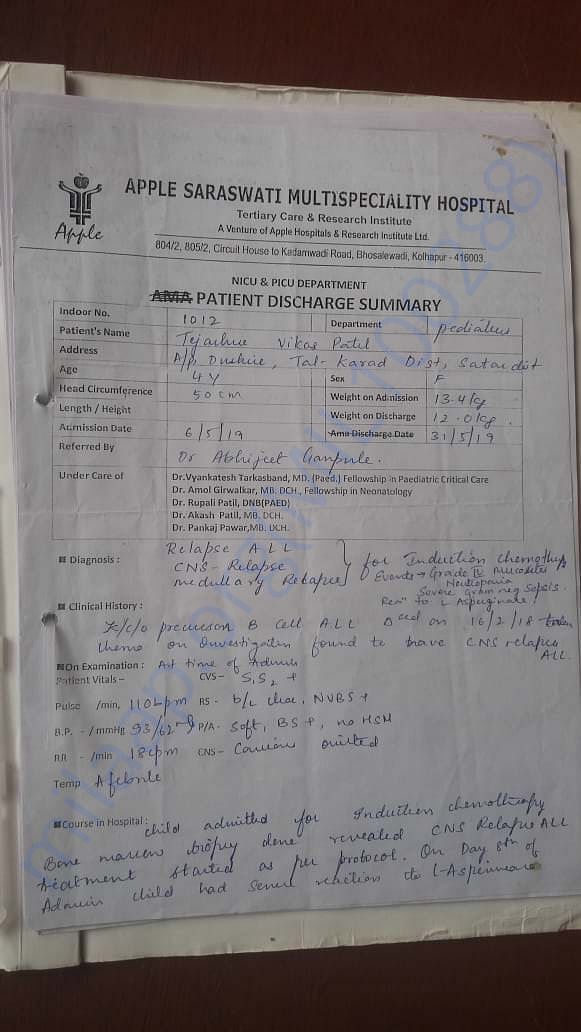 APPLE SARASWATI MULTISPECIALITY HOSPITAL
Tertiary Care & Research Institute
A Venture of Apple Hospitals & Research Institute Ltd.
Apple
804/2, 805/2, Circuit House to Kadamwadi Road, Bhosalewadi, Kolhapur - 416003.
NICU & PICU DEPARTMENT
AMA PATIENT DISCHARGE SUMMARY
Indoor No. 1012 Department pediatrics
Patient's Name Vikas Patil
Address A/p, Tal- Karad Dist, Satara
Age 4Y Sex F
Head Circumference 50 cm Weight on Admission 13.4 kg
Length / Height Weight on Discharge 12.0 kg.
Admission Date 6/5/19 Ama Discharge Date 31/5/19
Referred By Dr Abhijeet Ganpule.
Under Care of Dr.Vyankatesh Tarkasband, MD. (Paed.) Fellowship in Paediatric Critical Care
Dr. Amol Girwalkar, MB. DCH., Fellowship in Neonatology
Dr. Rupali Patil, DNB(PAED)
Dr. Akash Patil, MB. DCH.
Dr. Pankaj Pawar,MB. DCH.
Diagnosis : Relapse ALL
CNS - Relapse for Induction chemotherapy
medullary Relapse Events → Grade IV Mucositis
Neutropenia
Severe Gram neg Sepsis.
to L Asparginase
Clinical History : K/c/o B cell ALL on 16/2/18 taken
chemo on Investigation found to have CNS relapse
ALL.
On Examination : At time of Admission
Patient Vitals – CVS– S1S2 +
Pulse /min, 110bpm RS - b/L clear, NVBS+
B.P. - /mmHg 93/62 P/A- Soft, BS+, no HSM
RR - /min 18cpm CNS- Conscious oriented
Temp Afebrile
Course in Hospital : child admitted for Induction chemotherapy
Bone marrow biopsy done revealed CNS Relapse ALL
treatment started as per protocol. On Day 8th of
child had reaction to L-Asp
milaap